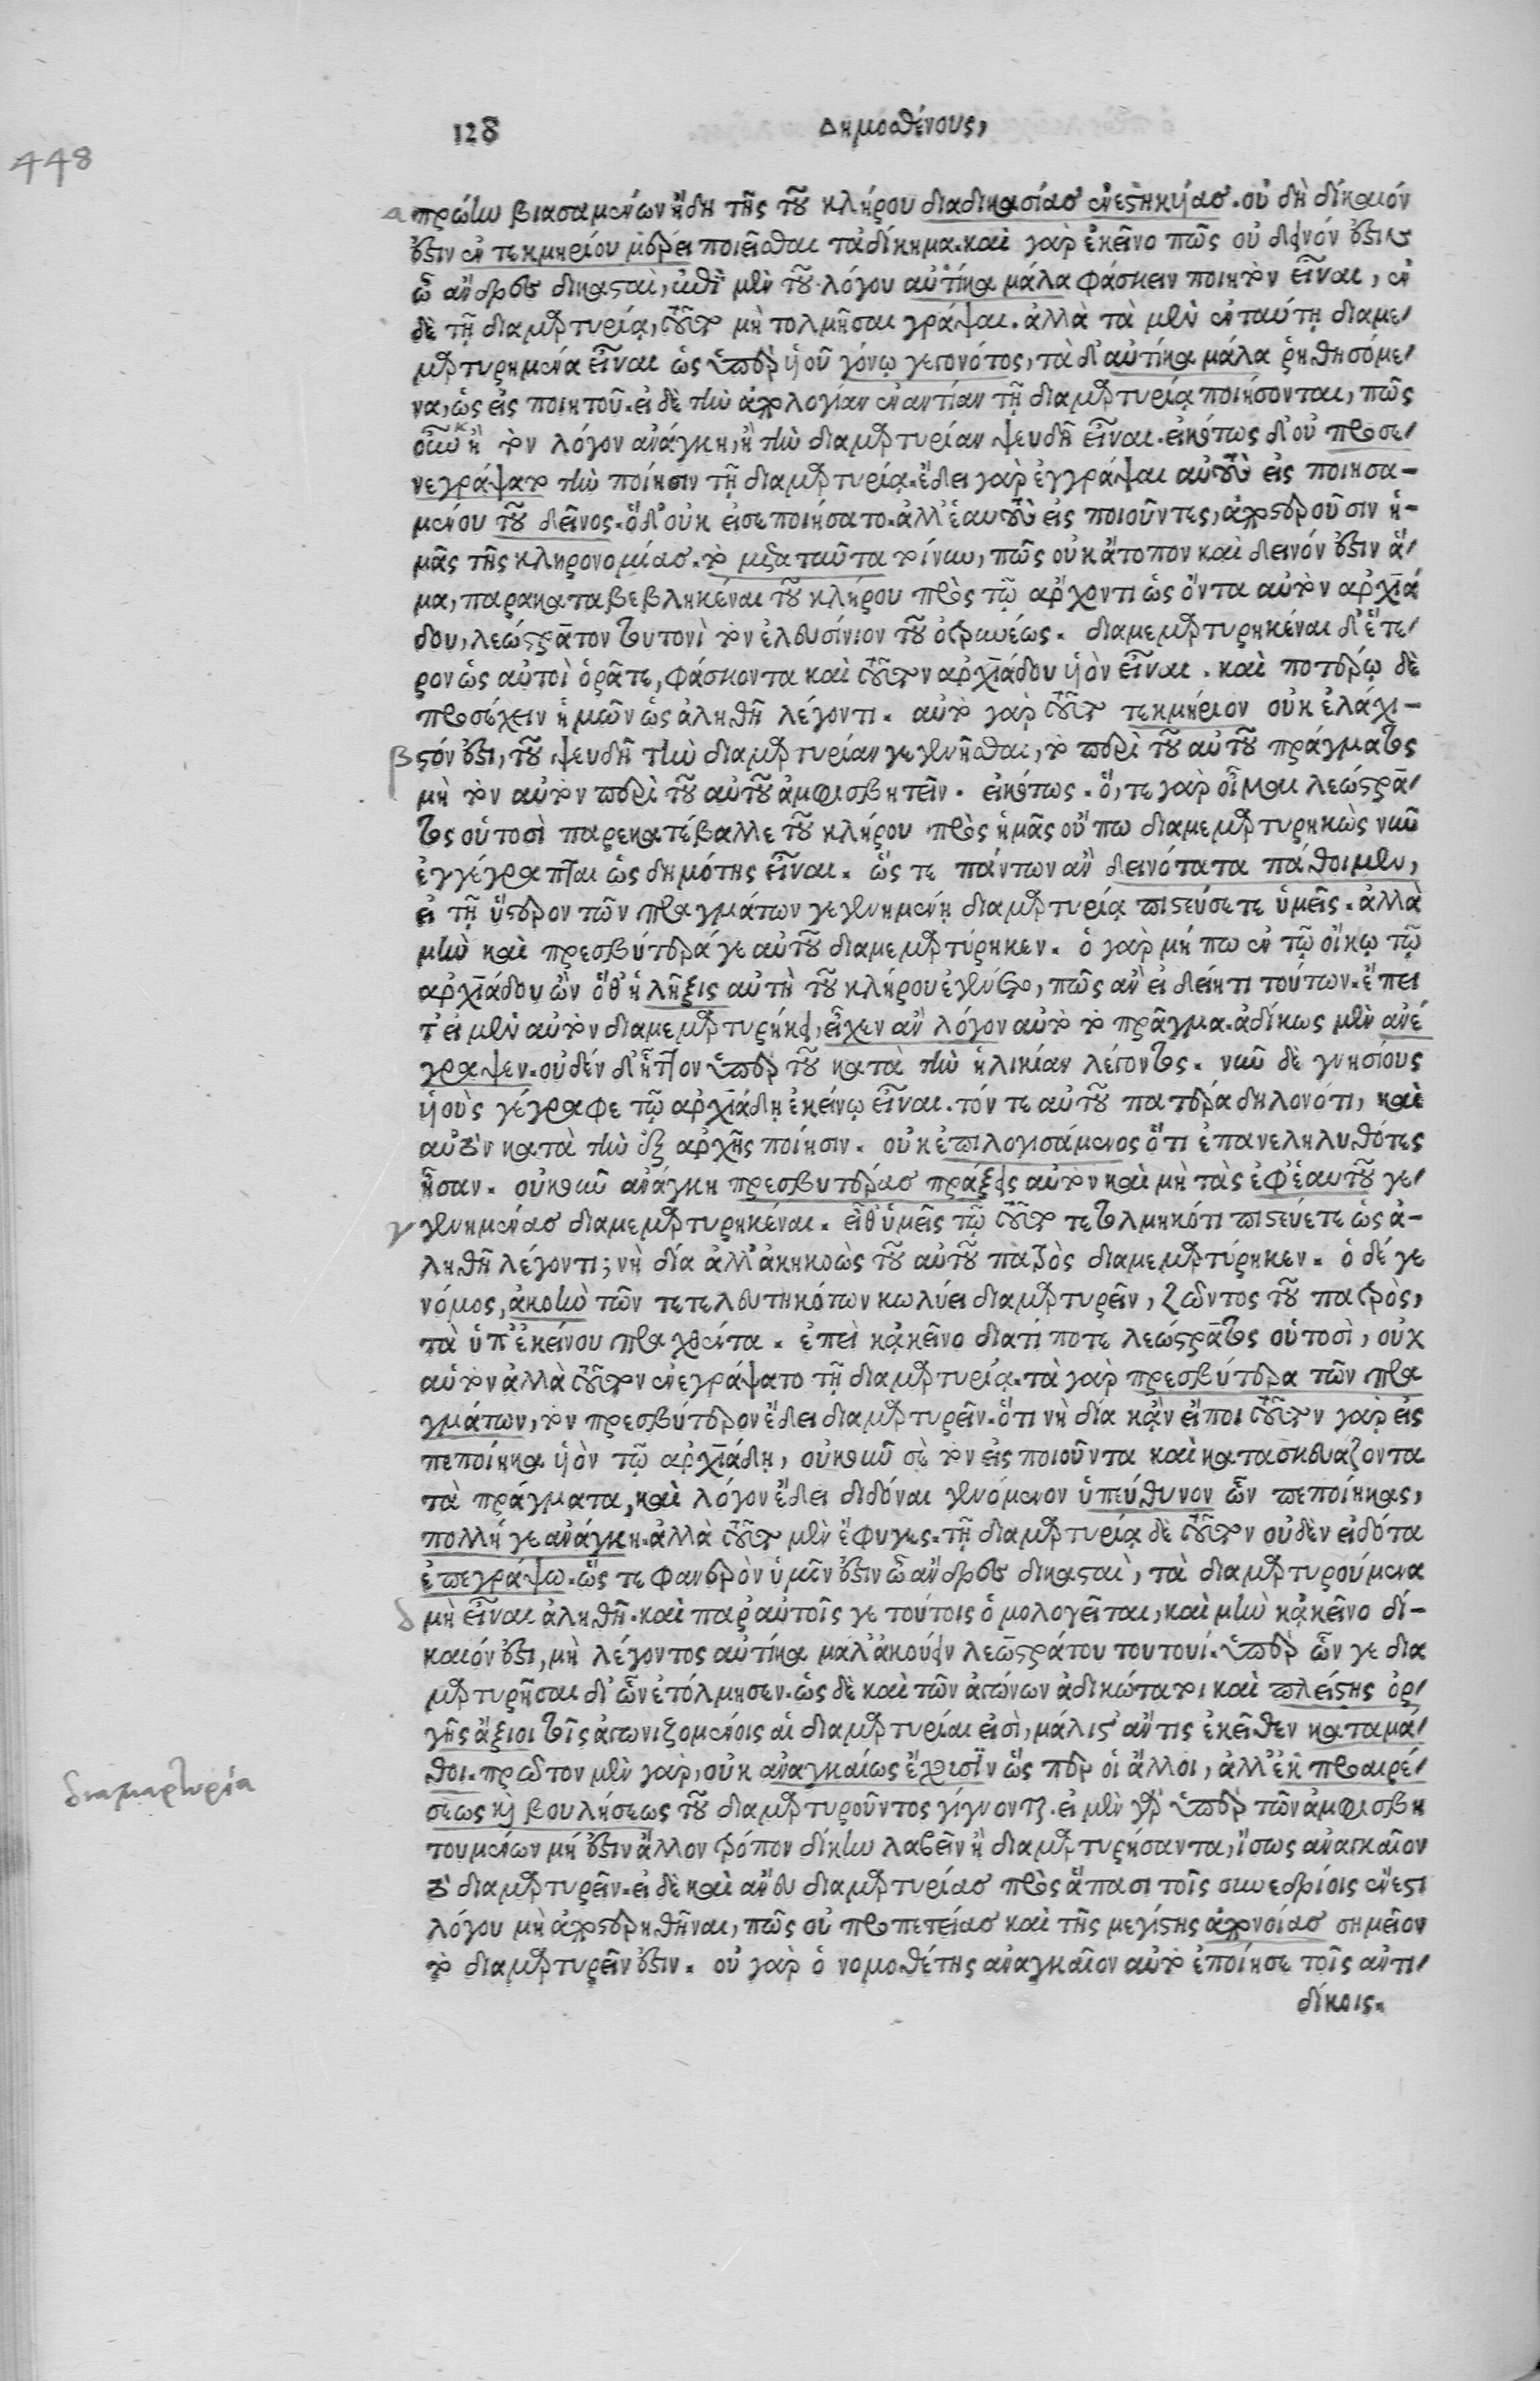 128
Δημοσθένους,
448
α πρώτῳ βιασαμένων ἤδη τῆς τοῦ κλήρου διαδικασίας ἐνεστηκυίας. οὐ δὴ δίκαιόν
ἐστιν ἐν τεκμηρίου μέρει ποιεῖσθαι τἀδίκημα. καὶ γὰρ ἐκεῖνο πῶς οὐ δεινόν ἐστιν
ὦ ἄνδρες δικασταὶ, ἐπὶ μὲν τοῦ λόγου αὐτίκα μάλα φάσκειν ποιητὸν εἶναι, ἐν
δὲ τῇ διαμαρτυρίᾳ, τοῦτο μὴ τολμῆσαι γράψαι. ἀλλὰ τὰ μὲν ἐν ταύτῃ διαμε-
μαρτυρημένα εἶναι ὡς ὑπὲρ ὑοῦ γόνῳ γεγονότος, τὰ δ' αὐτίκα μάλα ῥηθησόμε-
να, ὡς εἰς ποιητοῦ. εἰ δὲ τὴν ἀπολογίαν ἐναντίαν τῇ διαμαρτυρίᾳ ποιήσονται, πῶς
οὐκ ἢ τὸν λόγον ἀνάγκη, ἢ τὴν διαμαρτυρίαν ψευδῆ εἶναι. εἰκότως δ' οὐ προσε-
νεγράψαντο τὴν ποίησιν τῇ διαμαρτυρίᾳ. ἔδει γὰρ ἐγγράψαι αὐτοὺς εἰς ποιησα-
μένου τοῦ δεῖνος. ὁ δ' οὐκ εἰσεποιήσατο. ἀλλ' ἑαυτοὺς εἰς ποιοῦντες, ἀποστεροῦσιν ἡ-
μᾶς τῆς κληρονομίας. τὸ μετὰ ταῦτα τοίνυν, πῶς οὐκ ἄτοπον καὶ δεινόν ἐστιν ἅ-
μα, παρακαταβεβληκέναι τοῦ κλήρου πρὸς τῷ ἄρχοντι ὡς ὄντα αὐτὸν ἀρχιά
δου, λεώστρατον τουτονὶ τὸν ἐλευσίνιον τοῦ ὀτρυνέως. διαμεμαρτυρηκέναι δ' ἕτε-
ρον ὡς αὐτοὶ ὁρᾶτε, φάσκοντα καὶ τοῦτον ἀρχιάδου ὑὸν εἶναι. καὶ ποτέρῳ δὲ
προσέχειν ἡμῶν ὡς ἀληθῆ λέγοντι. αὐτὸ γὰρ τοῦτο τεκμήριον οὐκ ἐλάχι-
β στόν ἐστι, τοῦ ψευδῆ τὴν διαμαρτυρίαν γεγενῆσθαι, τὸ περὶ τοῦ αὐτοῦ πράγματος
μὴ τὸν αὐτὸν περὶ τοῦ αὐτοῦ ἀμφισβητεῖν. εἰκότως. ὅ, τε γὰρ οἶμαι λεώστρα-
τος οὑτοσὶ παρεκατέβαλλε τοῦ κλήρου πρὸς ἡμᾶς οὔπω διαμεμαρτυρηκὼς νῦν
ἐγγέγραπται ὡς δημότης εἶναι. ὥς τε πάντων ἂν δεινότατα πάθοιμεν,
εἰ τῇ ὕστερον τῶν πραγμάτων γεγενημένῃ διαμαρτυρίᾳ πιστεύσετε ὑμεῖς. ἀλλὰ
μὴν καὶ πρεσβύτερά γε αὐτοῦ διαμεμαρτύρηκεν. ὁ γὰρ μή πω ἐν τῷ οἴκῳ τῷ
ἀρχιάδου ὢν ὅθ' ἡ λῆξις αὐτὴ τοῦ κλήρου ἐγένετο, πῶς ἂν εἰδείη τι τούτων. ἔπει
τ' εἰ μὲν αὐτὸν διαμεμαρτυρήκει, εἶχεν ἂν λόγον αὐτὸ τὸ πρᾶγμα. ἀδίκως μὲν ἀνέ-
γραψεν. οὐδὲν δ' ἧττον ὑπὲρ τοῦ κατὰ τὴν ἡλικίαν λέγοντος. νῦν δὲ γνησίους
ὑοὺς γέγραφε τῷ ἀρχιάδῃ ἐκείνῳ εἶναι. τόν τε αὐτοῦ πατέρα δηλονότι, καὶ
αὐτὸν κατὰ τὴν ἐξ ἀρχῆς ποίησιν. οὐκ ἐπιλογισάμενος ὅτι ἐπανεληλυθότες
ἦσαν. οὐκοῦν ἀνάγκη πρεσβυτέρας πράξεις αὐτὸν καὶ μὴ τὰς ἐφ' ἑαυτοῦ γε-
γ γενημένας διαμεμαρτυρηκέναι. εἶθ' ὑμεῖς τῷ τοῦτο τετολμηκότι πιστεύετε ὡς ἀ-
ληθῆ λέγοντι; νὴ δία ἀλλ' ἀκηκοὼς τοῦ αὐτοῦ πατρὸς διαμεμαρτύρηκεν. ὁ δέ γε
νόμος, ἀκοὴν τῶν τετελευτηκότων κωλύει διαμαρτυρεῖν, ζῶντος τοῦ πατρὸς,
τὰ ὑπ' ἐκείνου πραχθέντα. ἐπεὶ κἀκεῖνο διατί ποτε λεώστρατος οὑτοσὶ, οὐχ
αὑτὸν ἀλλὰ τοῦτον ἐνεγράψατο τῇ διαμαρτυρίᾳ. τὰ γὰρ πρεσβύτερα τῶν πρα
γμάτων, τὸν πρεσβύτερον ἔδει διαμαρτυρεῖν. ὅτι νὴ δία κἂν εἴποι τοῦτον γὰρ εἰς
πεποίηκα ὑὸν τῷ ἀρχιάδῃ, οὐκοῦν σὲ τὸν εἰς ποιοῦντα καὶ κατασκευάζοντα
τὰ πράγματα, καὶ λόγον ἔδει διδόναι γενόμενον ὑπεύθυνον ὧν πεποίηκας,
πολλή γε ἀνάγκη. ἀλλὰ τοῦτο μὲν ἔφυγες. τῇ διαμαρτυρίᾳ δὲ τοῦτον οὐδὲν εἰδότα
ἐπεγράψω. ὥς τε φανερὸν ὑμῖν ἐστιν ὦ ἄνδρες δικασταὶ, τὰ διαμαρτυρούμενα
δ μὴ εἶναι ἀληθῆ. καὶ παρ' αὐτοῖς γε τούτοις ὁμολογεῖται, καὶ μὴν κἀκεῖνο δί-
καιόν ἐστι, μὴ λέγοντος αὐτίκα μάλ' ἀκούειν λεωστράτου τουτουί. ὑπὲρ ὧν γε δια
μαρτυρῆσαι δι' ὧν ἐτόλμησεν. ὡς δὲ καὶ τῶν ἀγώνων ἀδικώτατοι καὶ πλείστης ὀρ-
γῆς ἄξιοι τοῖς ἀγωνιζομένοις αἱ διαμαρτυρίαι εἰσὶ, μάλιστ' ἄν τις ἐκεῖθεν καταμά-
θοι. πρῶτον μὲν γὰρ, οὐκ ἀναγκαίως ἔχουσιν ὥς περ οἱ ἄλλοι, ἀλλ' ἐκ προαιρέ-
σεως καὶ βουλήσεως τοῦ διαμαρτυροῦντος γίγνονται. εἰ μὲν γὰρ ὑπὲρ τῶν ἀμφισβη
τουμένων μή ἐστιν ἄλλον τρόπον δίκην λαβεῖν ἢ διαμαρτυρήσαντα, ἴσως ἀναγκαῖον
τὸ διαμαρτυρεῖν. εἰ δὲ καὶ ἄνευ διαμαρτυρίας πρὸς ἅπασι τοῖς συνεδρίοις ἔνεστι
λόγου μὴ ἀποστερηθῆναι, πῶς οὐ προπετείας καὶ τῆς μεγίστης ἀπονοίας σημεῖον
τὸ διαμαρτυρεῖν ἐστιν. οὐ γὰρ ὁ νομοθέτης ἀναγκαῖον αὐτὸ ἐποίησε τοῖς ἀντι-
δίκοις.
διαμαρτυρία